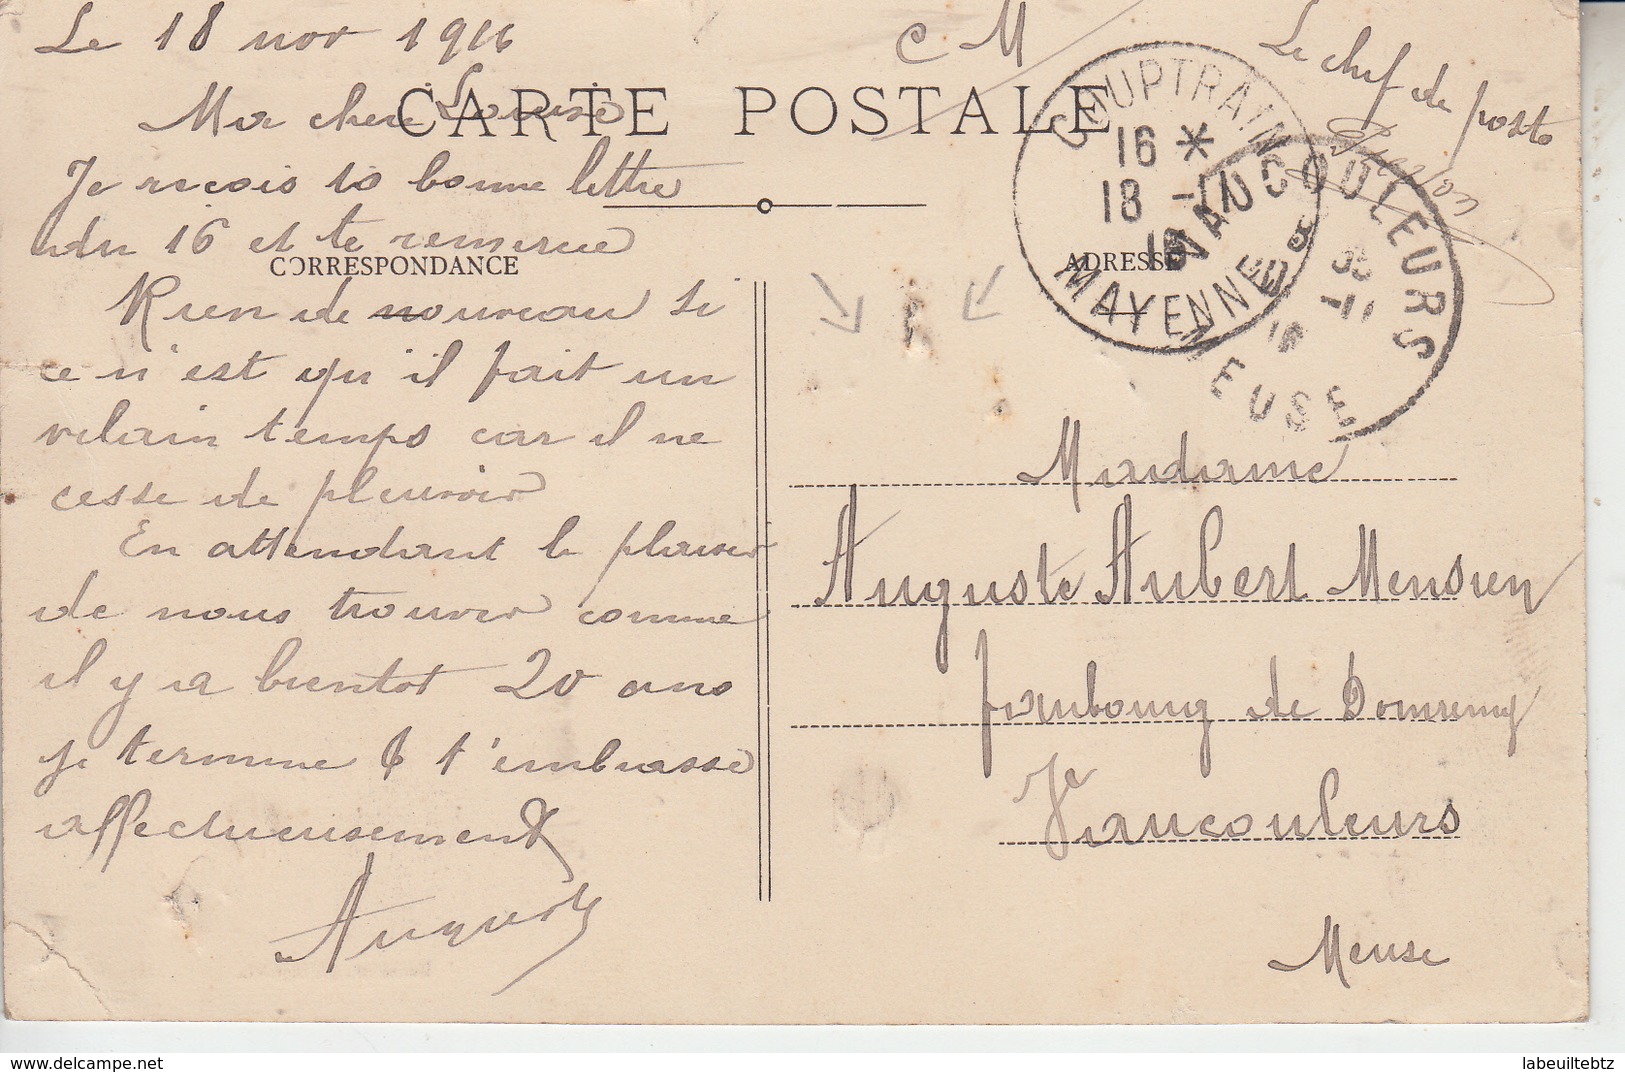 Le 18 nov 1916
C M
Le chef de poste
CARTE POSTALE
Ma cheri Louise
Je recois ta bonne lettre
du 16 et te remercie
CORRESPONDANCE
Rien de nouveau si
ce n'est qu'il fait un
vilain temps car il ne
cesse de pleuvoir
En attendant le plaisir
de nous trouver comme
il y a bientot 20 ans
je termine & t'embrasse
affectueusement
Auguste
COUPTRAIN
16 *
18 -11
16
MAYENNE
VAUCOULEURS
-11
16
MEUSE
ADRESSE
Madame
Auguste Aubert Mensien
faubourg de Domremy
Vaucouleurs
Meuse
www.delcampe.net
labeuiltebtz